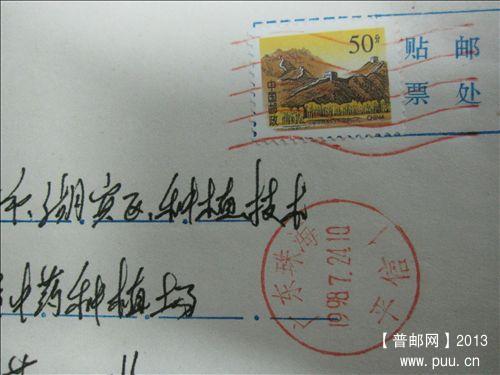 50分
中国邮政
CHINA
贴 邮
票 处
湖宾区、种植技术
中药种植场
广东珠海
1998.7.24.10
兴信
【普邮网】2013
www.puu.cn